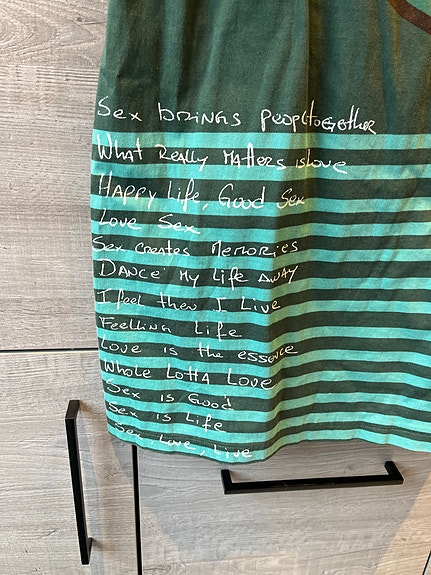 Sex brings people together
What Really Matters is love
Happy Life, Good Sex
Love Sex
Sex creates Memories
Dance My Life Away
I feel then I Live
Feelling Life
Love is the essence
Whole Lotta Love
Sex is Good
Sex is Life
Sex Love, Live